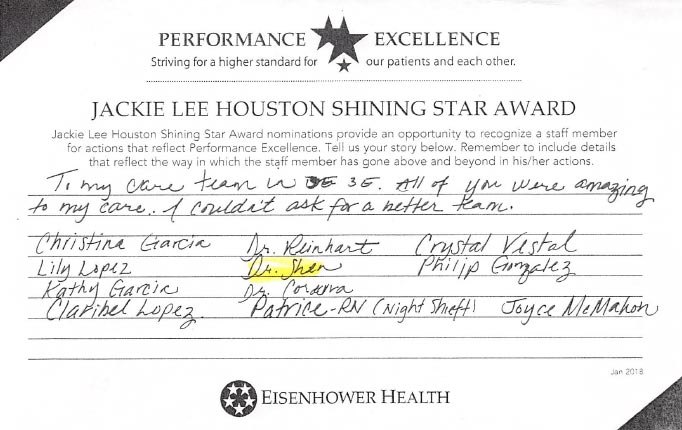 PERFORMANCE EXCELLENCE
Striving for a higher standard for our patients and each other.
JACKIE LEE HOUSTON SHINING STAR AWARD
Jackie Lee Houston Shining Star Award nominations provide an opportunity to recognize a staff member
for actions that reflect Performance Excellence. Tell us your story below. Remember to include details
that reflect the way in which the staff member has gone above and beyond in his/her actions.
To my care team in 3E. All of you were amazing
to my care.. I couldn't ask for a better team.
Christina Garcia Dr. Reinhart Crystal Vestal
Lily Lopez Dr. Shen Philip Gonzalez
Kathy Garcia Dr. Cordova
Claribel Lopez. Patrice-RN (Night Shift) Joyce McMahon
Jan 2018
EISENHOWER HEALTH